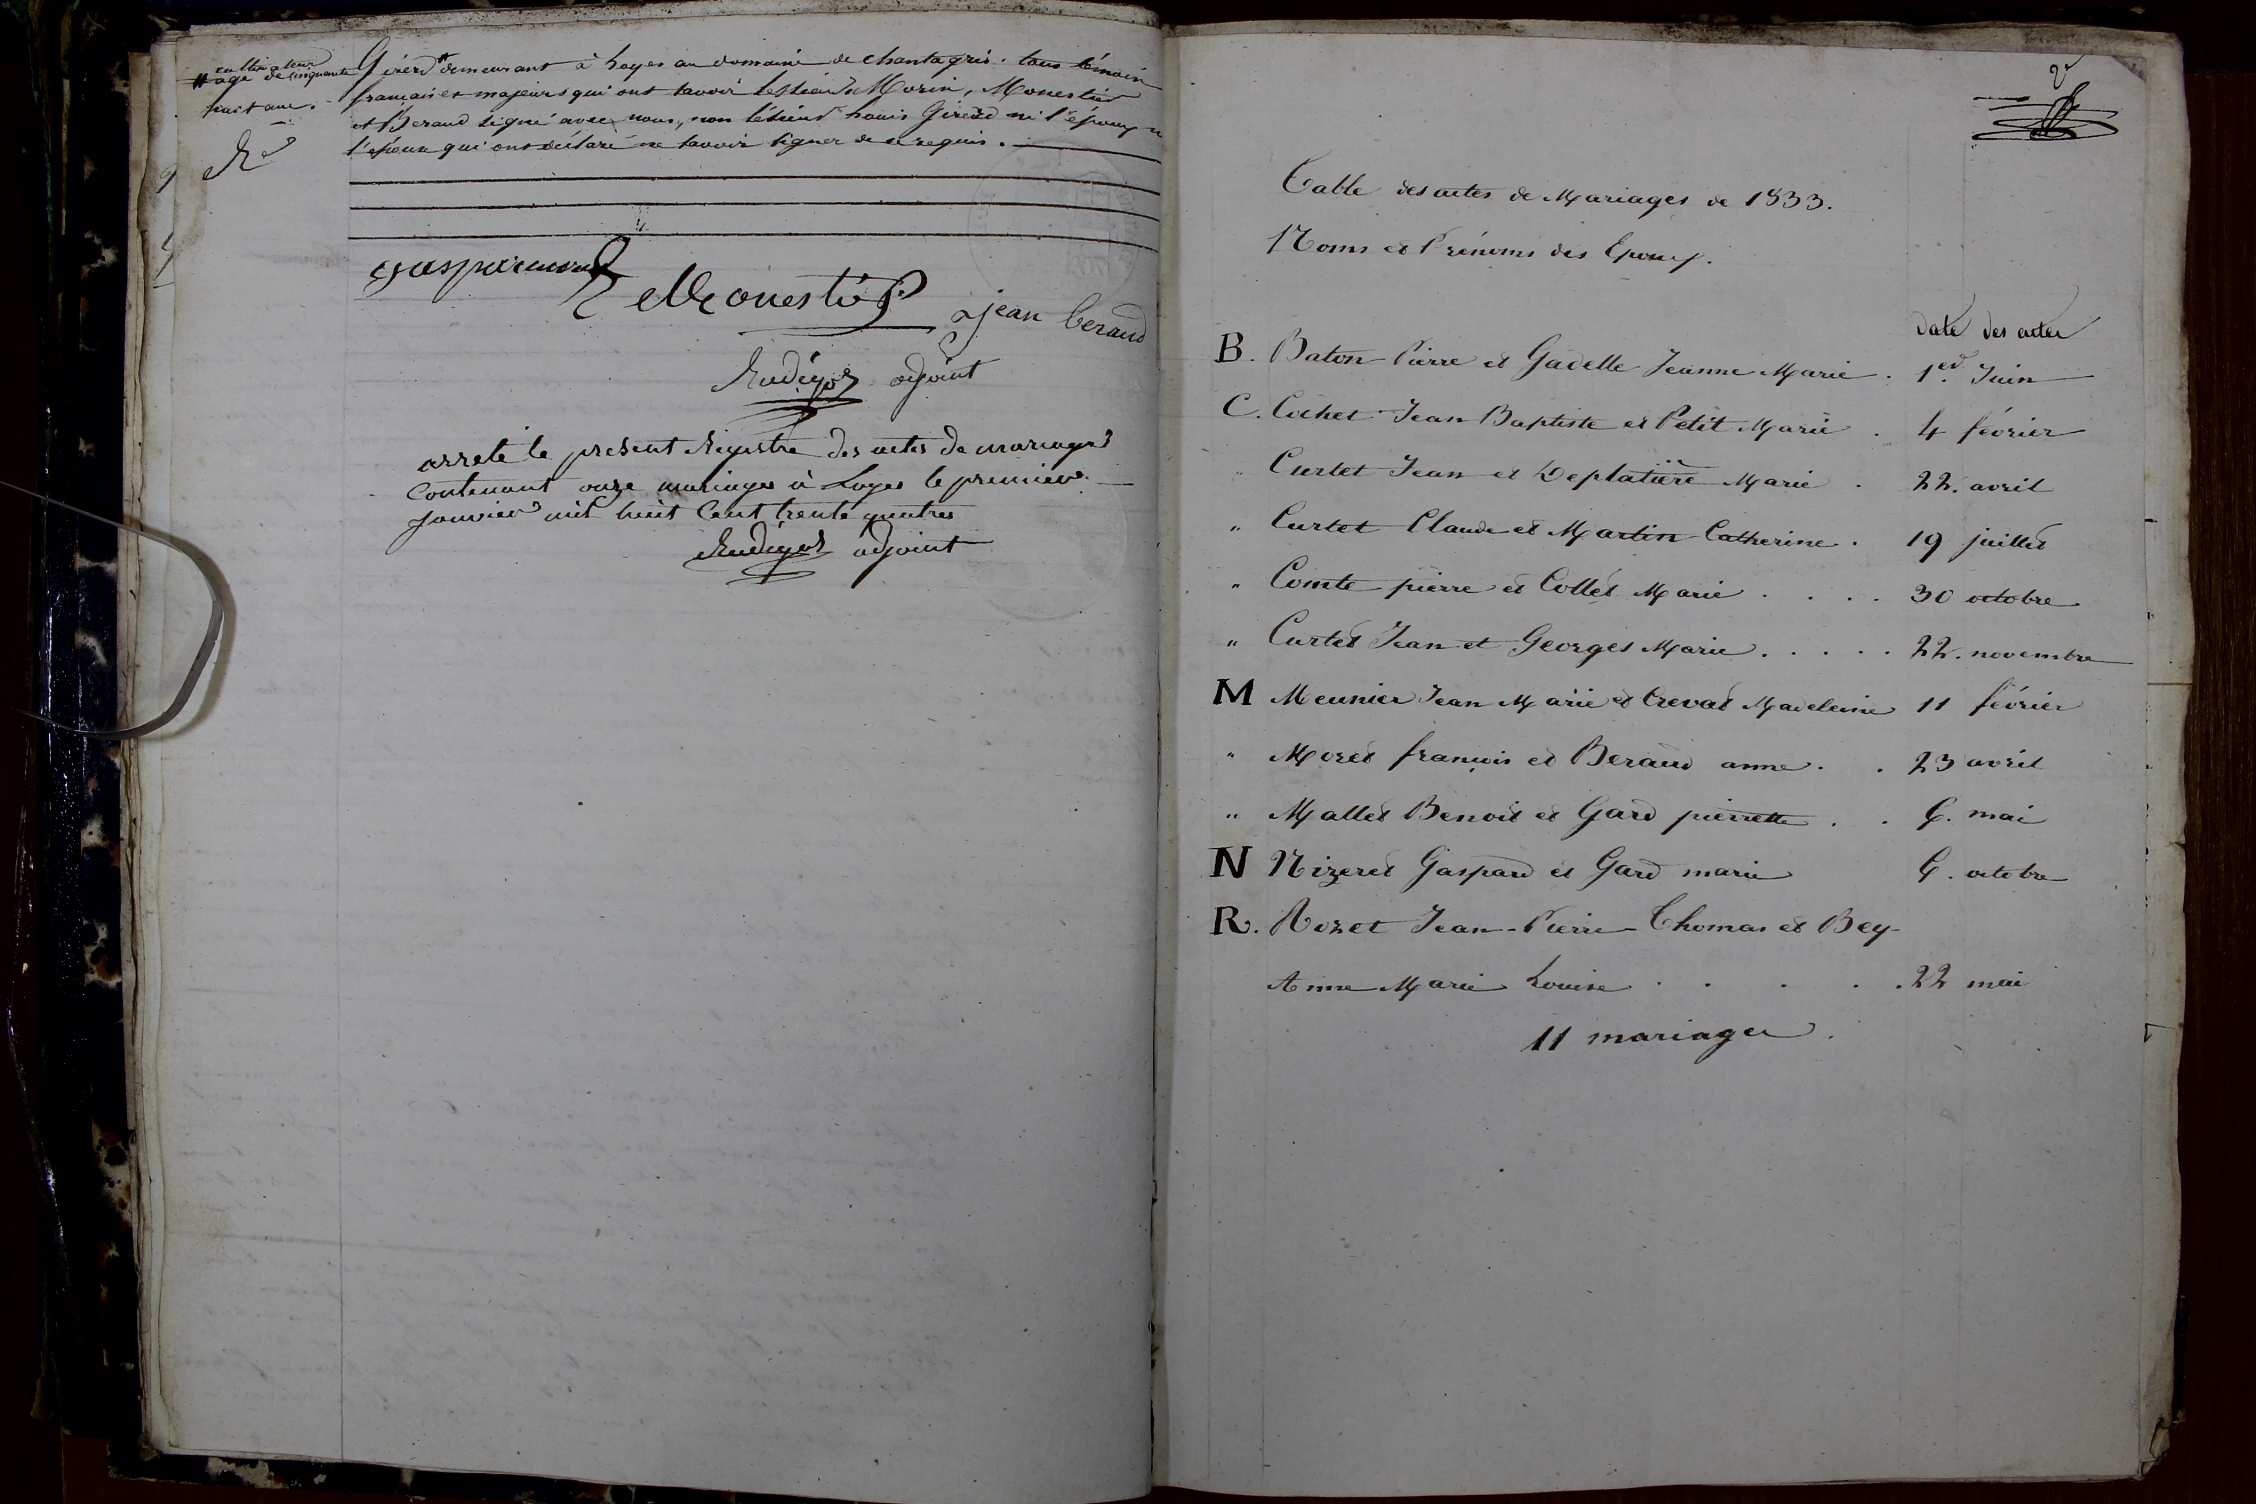 cultivateur
# agé de cinquante
huit ans.
Girerd # demeurant à Loyes au domaine de chantagris. tous témoins
français et majeurs qui ont savoir les sieurs Morin, Monestier
et Beraud signé avec nous, non le sieur Louis Girerd ni l'épouse ni
l'époux qui ont déclaré ne savoir signer de ce requis.
gaspar morin
Monestier
jean beraud
Rudigoz adjoint
arreté le present Registre des actes de mariages
Contenant onze mariages à Loyes le premier
Janvier mil huit Cent trente quatres
Rudigoz adjoint
2e
Table des actes de Mariages de 1833.
Noms et Prénoms des Epoux.
date des actes
B. Baton Pierre et Gadelle Jeanne Marie . 1er Juin
C. Cochet Jean Baptiste et Petit Marie . 4 février
" Curtet Jean et Deplatière Marie . 22. avril
" Curtet Claude et Martin Catherine . 19 juillet
" Comte pierre et Collet Marie . . . . 30 octobre
" Curtet Jean et Georges Marie . . . . . 22. novembre
M Meunier Jean Marie et Crevat Madeleine 11 février
" Moret françois et Beraud anne . . 23 avril
" Mallet Benoit et Gard pierrette . . 6. mai
N Nizeret Gaspard et Gard marie 6. octobre
R. Rozet Jean-Pierre-Thomas et Bey-
Anne Marie Louise . . . . . 22 mai
11 mariages.